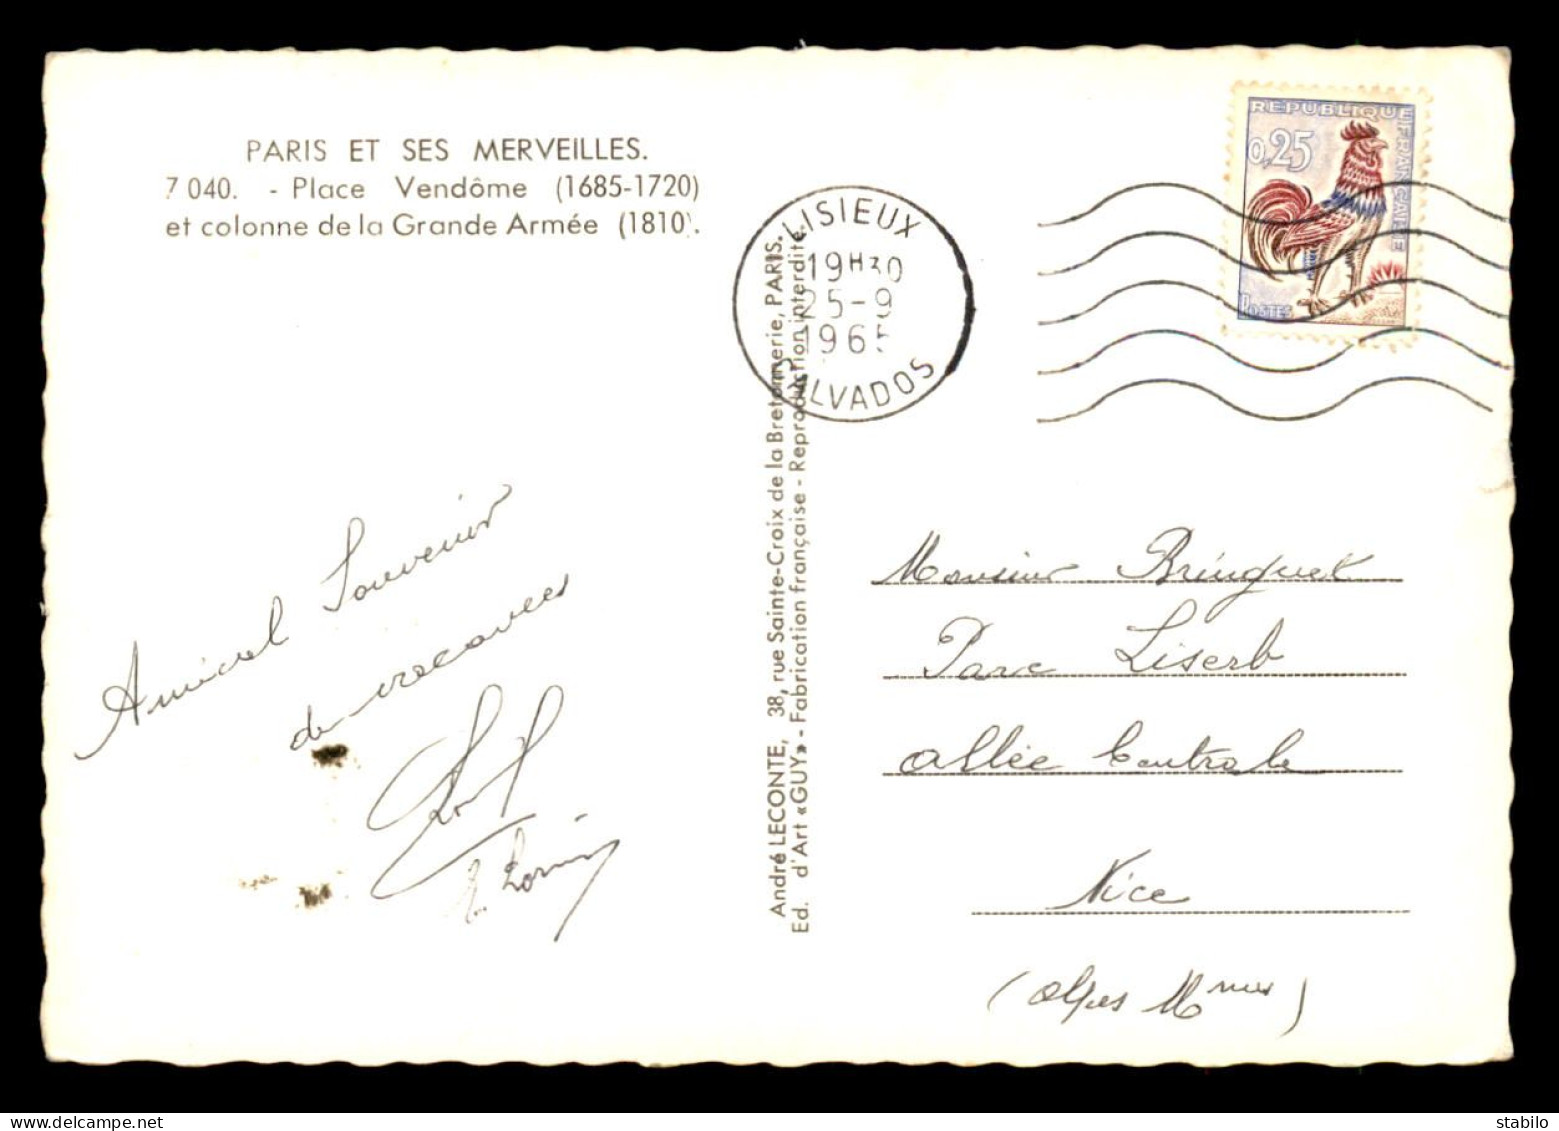 PARIS ET SES MERVEILLES.
7 040. - Place Vendôme (1685-1720)
et colonne de la Grande Armée (1810).
Amical Souvenir
de vacances
André LECONTE, 38, rue Sainte-Croix de la Bretonnerie, PARIS.
Ed. d'Art «GUY» - Fabrication française - Reproduction interdite.
LISIEUX
19H30
25-9
1965
CALVADOS
REPUBLIQUE FRANÇAISE
0,25
POSTES
Monsieur Bringuet
Parc Liserb
Allée Centrale
Nice
(Alpes Mmes)
stabilo